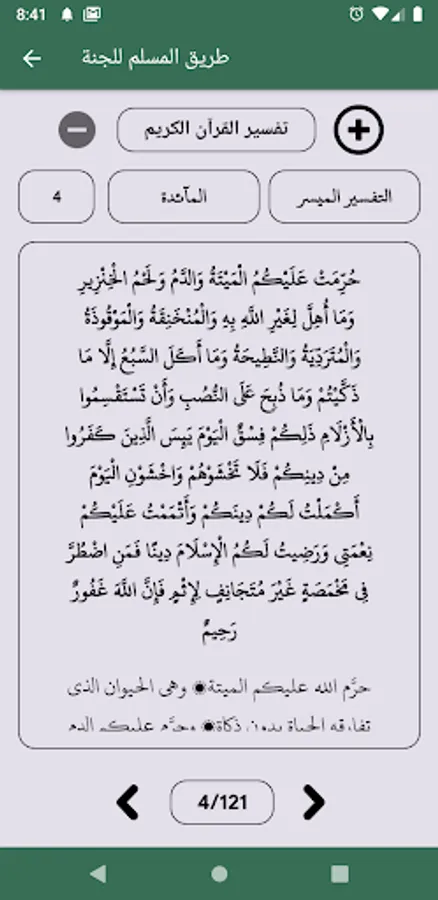 8:41
طريق المسلم للجنة
تفسير القرآن الكريم
التفسير الميسر
المآئدة
4
حُرِّمَتْ عَلَيْكُمُ الْمَيْتَةُ وَالدَّمُ وَلَحْمُ الْخِنْزِيرِ
وَمَا أُهِلَّ لِغَيْرِ اللَّهِ بِهِ وَالْمُنْخَنِقَةُ وَالْمَوْقُوذَةُ
وَالْمُتَرَدِّيَةُ وَالنَّطِيحَةُ وَمَا أَكَلَ السَّبُعُ إِلَّا مَا
ذَكَّيْتُمْ وَمَا ذُبِحَ عَلَى النُّصُبِ وَأَنْ تَسْتَقْسِمُوا
بِالْأَزْلَامِ ذَلِكُمْ فِسْقٌ الْيَوْمَ يَئِسَ الَّذِينَ كَفَرُوا
مِنْ دِينِكُمْ فَلَا تَخْشَوْهُمْ وَاخْشَوْنِ الْيَوْمَ
أَكْمَلْتُ لَكُمْ دِينَكُمْ وَأَتْمَمْتُ عَلَيْكُمْ
نِعْمَتِي وَرَضِيتُ لَكُمُ الْإِسْلَامَ دِينًا فَمَنِ اضْطُرَّ
فِي مَخْمَصَةٍ غَيْرَ مُتَجَانِفٍ لِإِثْمٍ فَإِنَّ اللَّهَ غَفُورٌ
رَحِيمٌ
حرَّم الله عليكم الميتة◉ وهي الحيوان الذي
تفارقه الحياة بدون ذكاة◉ وحرَّم عليكم الدم
4/121